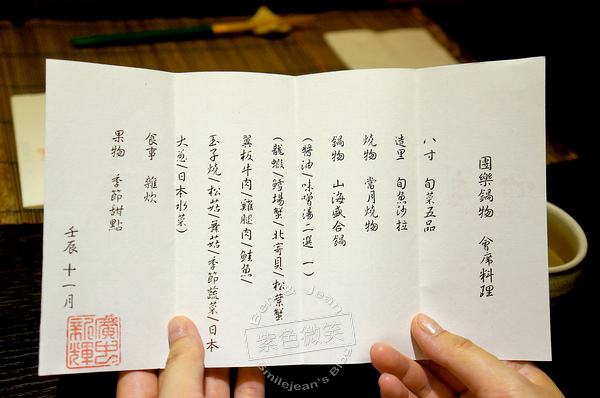 團樂鍋物　會席料理
八寸　旬菜五品
造里　旬魚沙拉
燒物　當月燒物
鍋物　山海盛合鍋
(醬油/味噌湯二選一)
(龍蝦/鱈場蟹/北寄貝/松葉蟹
翼板牛肉/雞腿肉/鮭魚/
玉子燒/松菇/舞菇/季節蔬菜/日本
大蔥/日本水菜)
食事　雜炊
果物　季節甜點
壬辰 十一月
Ben & Jean
紫色微笑
Smilejean's Blog